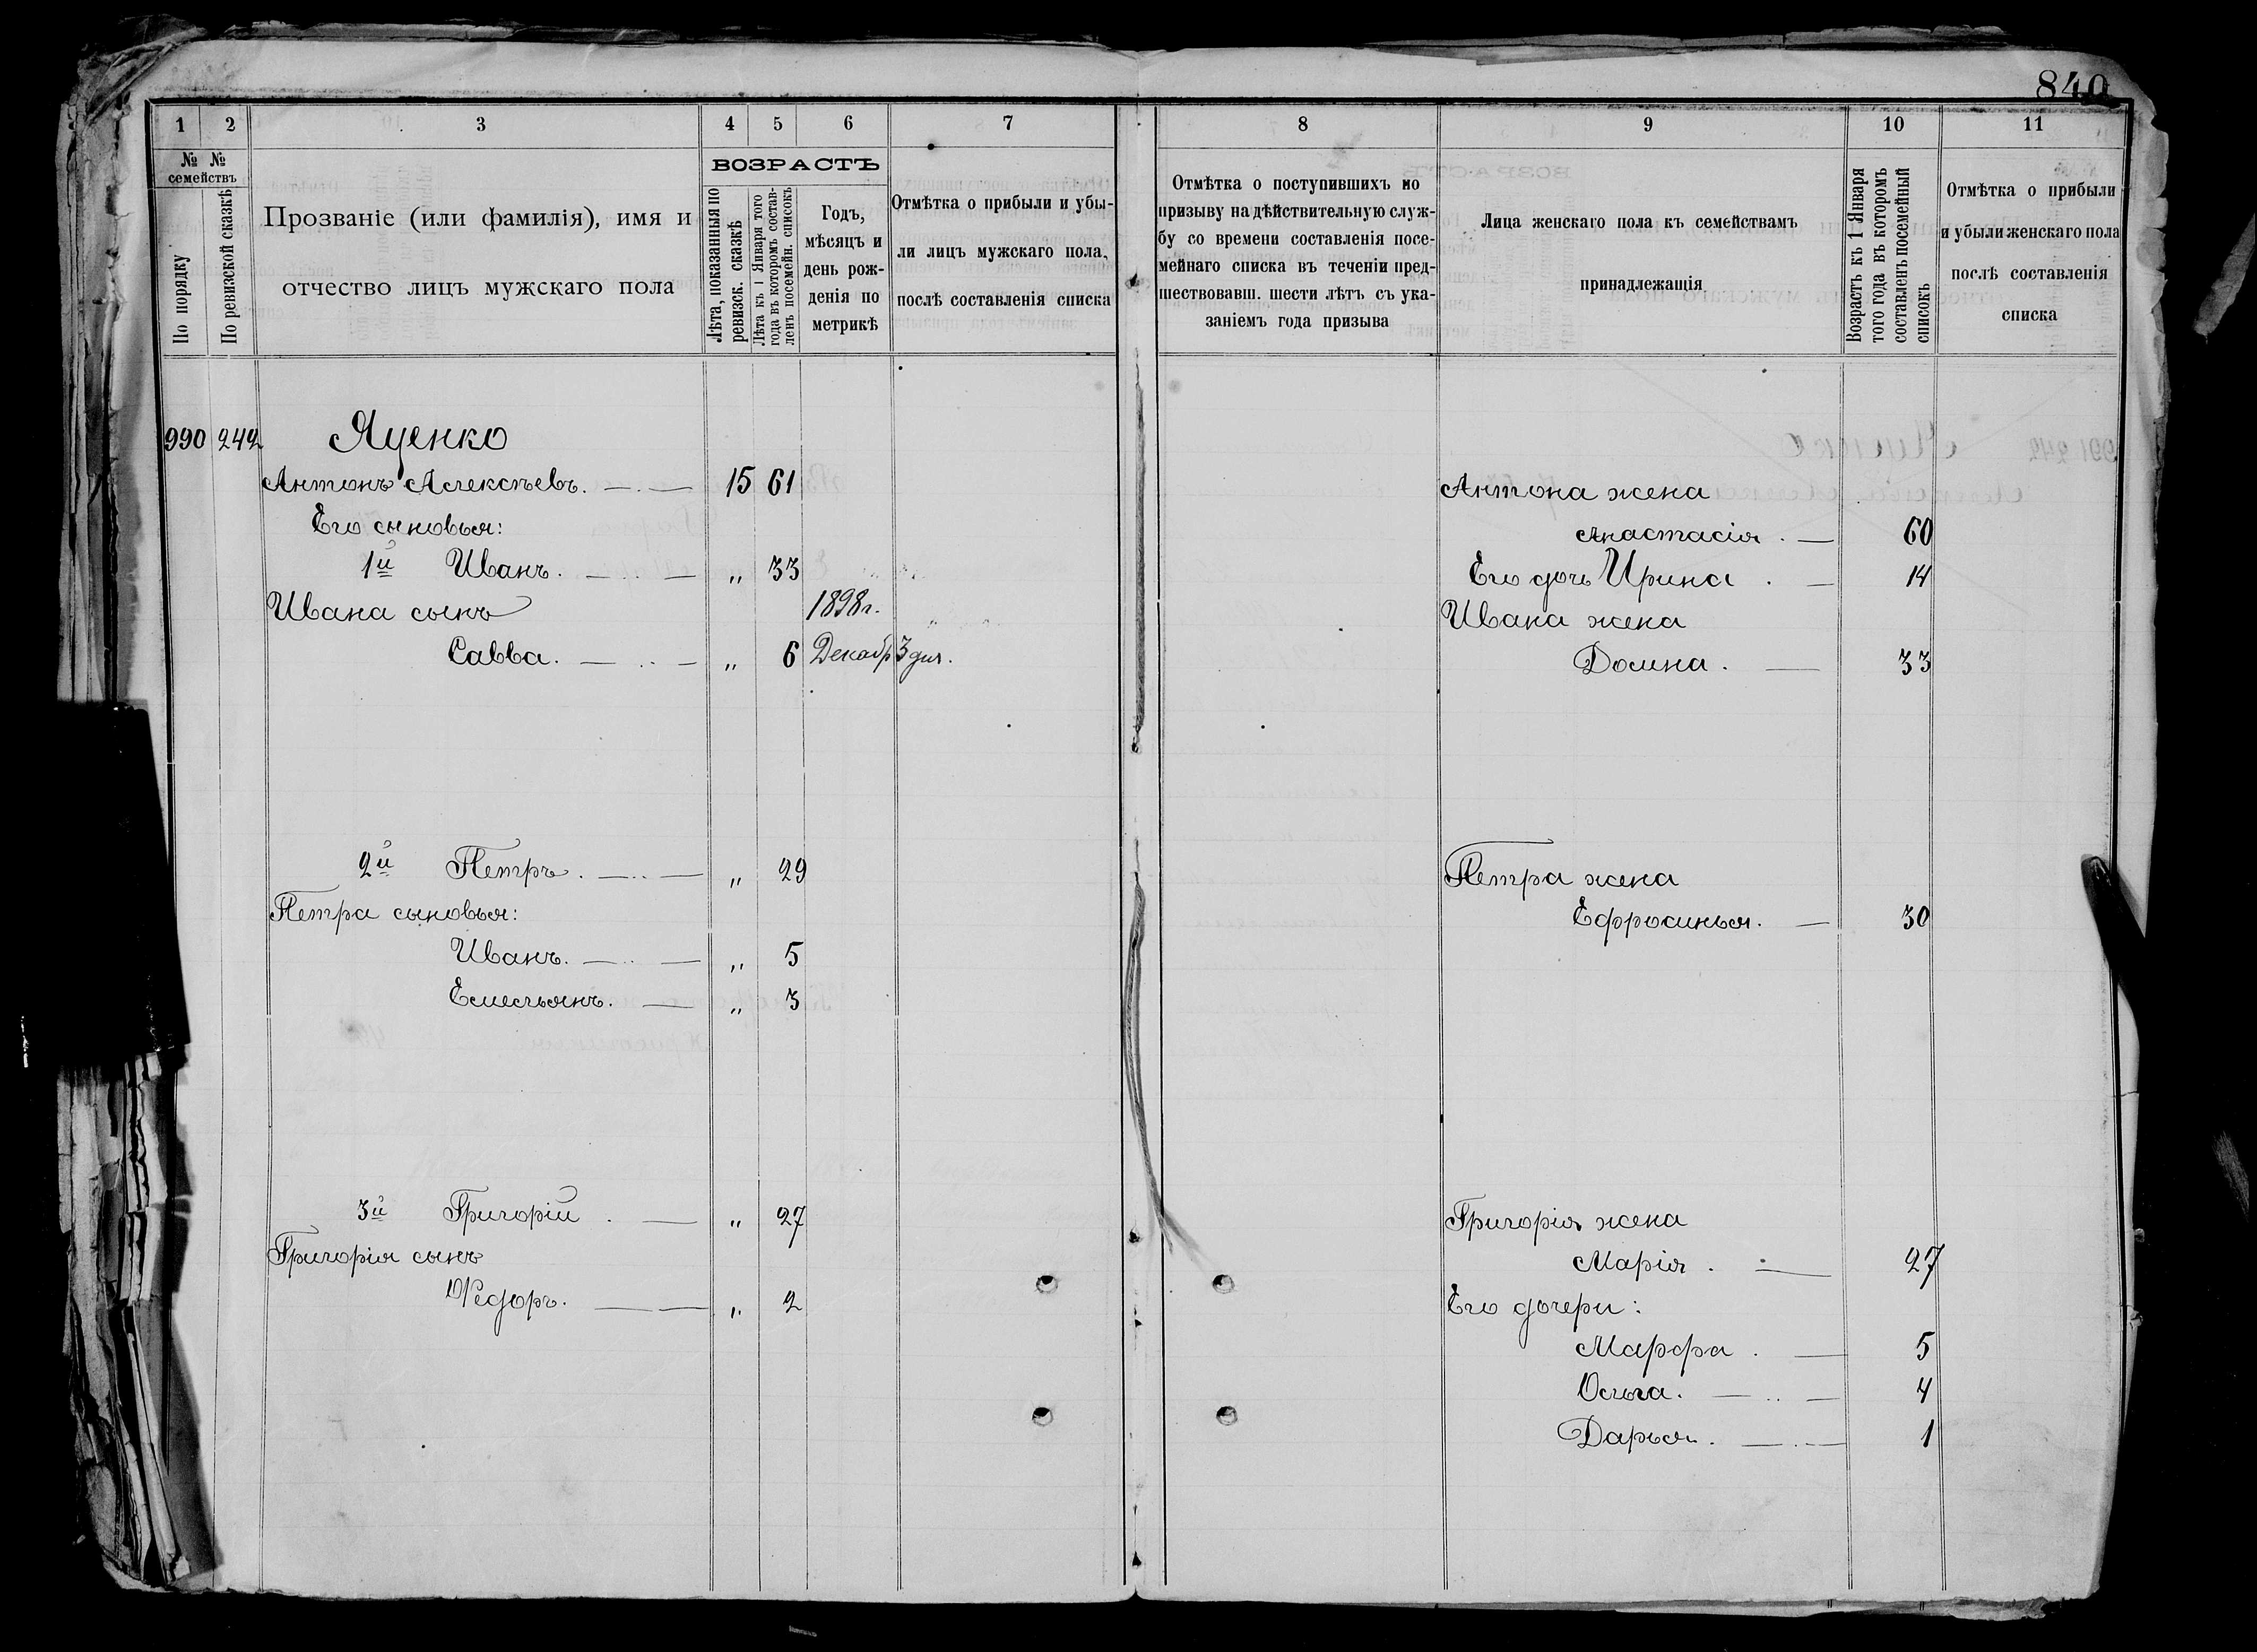 840
1 2 3 4 5 6 7
№ № семействъ
По порядку
По ревизской сказкѣ
Прозваніе (или фамилія), имя и
отчество лицъ мужскаго пола
ВОЗРАСТЪ
Лѣта, показанныя по
ревизск. сказкѣ
Лѣта къ 1 Января того
года въ которомъ состав-
ленъ посемейн. списокъ
Годъ,
мѣсяцъ и
день рож-
денія по
метрикѣ
Отмѣтка о прибыли и убы-
ли лицъ мужскаго пола,
послѣ составленія списка
990 242 Яценко
Антонъ Алексѣевъ. 15 61
Его сыновья:
1й Иванъ. „ 33
Ивана сынъ 1898г.
Савва. „ 6 Декабр 3 дня.
2й Петръ. „ 29
Петра сыновья:
Иванъ. „ 5
Емельянъ. „ 3
3й Григорій. „ 27
Григорія сынъ
Ѳедоръ. „ 2
8 9 10 11
Отмѣтка о поступившихъ по
призыву на дѣйствительную служ-
бу со времени составленія посе-
мейнаго списка въ теченіи пред-
шествовавш. шести лѣтъ съ ука-
заніемъ года призыва
Лица женскаго пола къ семействамъ
принадлежащія
Возрастъ къ 1 Января
того года въ которомъ
составленъ посемейный
списокъ
Отмѣтка о прибыли
и убыли женскаго пола
послѣ составленія
списка
Антона жена
Анастасія. 60
Его дочь Ирина. 14
Ивана жена
Домна. 33
Петра жена
Ефросинья. 30
Григорія жена
Марія. 27
Его дочери:
Марфа. 5
Ольга. 4
Дарья. 1